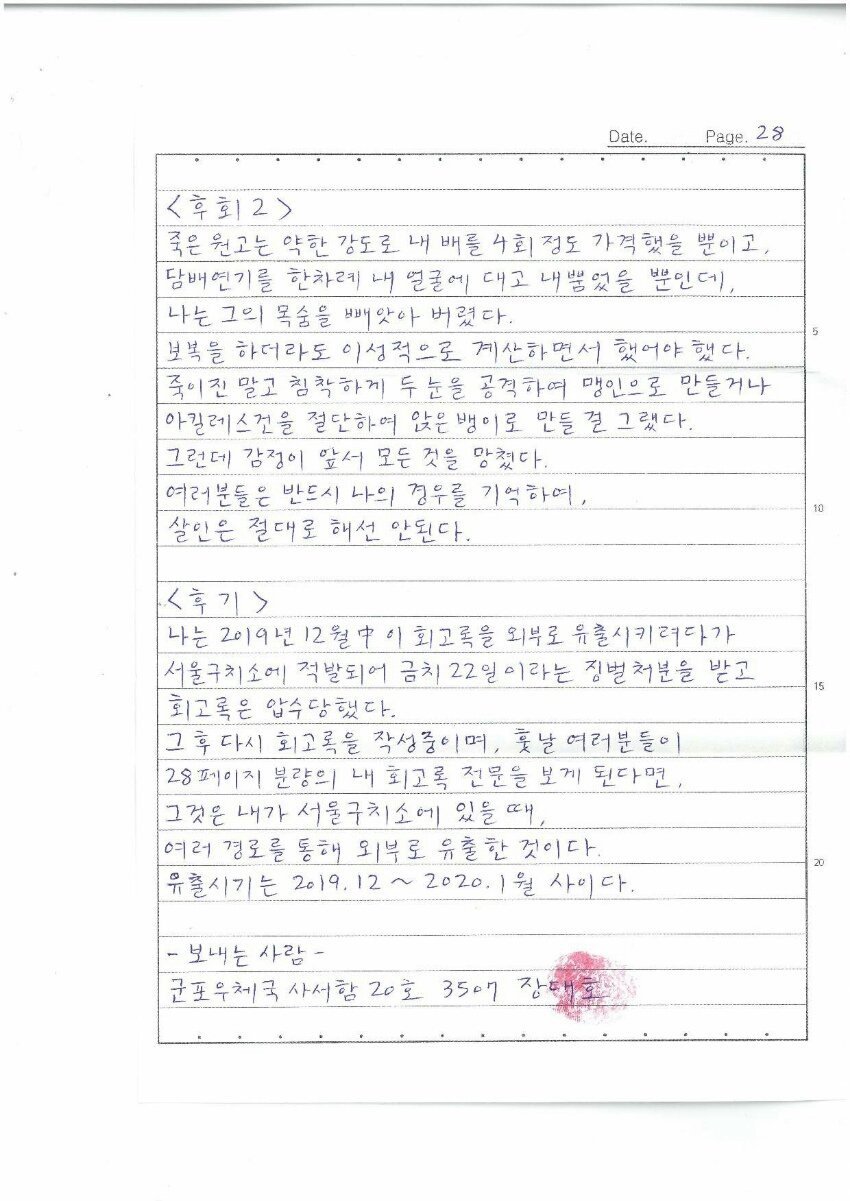 Date. Page. 28
<후회 2>
죽은 원고는 약한 강도로 내 배를 4회 정도 가격했을 뿐이고,
담배연기를 한차례 내 얼굴에 대고 내뿜었을 뿐인데,
나는 그의 목숨을 빼앗아 버렸다.
5
보복을 하더라도 이성적으로 계산하면서 했어야 했다.
죽이진 말고 침착하게 두 눈을 공격하여 맹인으로 만들거나
아킬레스건을 절단하여 앉은뱅이로 만들 걸 그랬다.
그런데 감정이 앞서 모든 것을 망쳤다.
여러분들은 반드시 나의 경우를 기억하여,
10
살인은 절대로 해선 안된다.
<후기>
나는 2019년 12월中 이 회고록을 외부로 유출시키려다가
서울구치소에 적발되어 금치 22일이라는 징벌처분을 받고
15
회고록은 압수당했다.
그 후 다시 회고록을 작성중이며, 훗날 여러분들이
28페이지 분량의 내 회고록 전문을 보게 된다면,
그것은 내가 서울구치소에 있을 때,
여러 경로를 통해 외부로 유출한 것이다.
20
유출시기는 2019.12 ~ 2020.1월 사이다.
- 보내는 사람 -
군포우체국 사서함 20호 3507 장대호